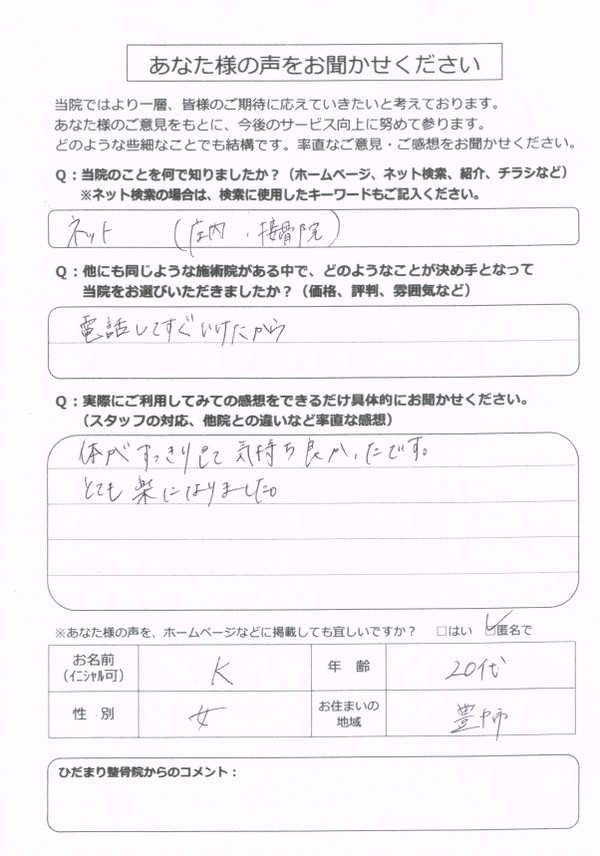 あなた様の声をお聞かせください
当院ではより一層、皆様のご期待に応えていきたいと考えております。
あなた様のご意見をもとに、今後のサービス向上に努めて参ります。
どのような些細なことでも結構です。率直なご意見・ご感想をお聞かせください。
Q：当院のことを何で知りましたか？（ホームページ、ネット検索、紹介、チラシなど）
※ネット検索の場合は、検索に使用したキーワードもご記入ください。
ネット （庄内 ・接骨院）
Q：他にも同じような施術院がある中で、どのようなことが決め手となって
当院をお選びいただきましたか？（価格、評判、雰囲気など）
電話してすぐいけたから
Q：実際にご利用してみての感想をできるだけ具体的にお聞かせください。
（スタッフの対応、他院との違いなど率直な感想）
体がすっきりして気持ち良かったです。
とても楽になりました。
※あなた様の声を、ホームページなどに掲載しても宜しいですか？ □はい ☑匿名で
お名前
（イニシャル可） K 年 齢 20代
性 別 女 お住まいの
地域 豊中市
ひだまり整骨院からのコメント：